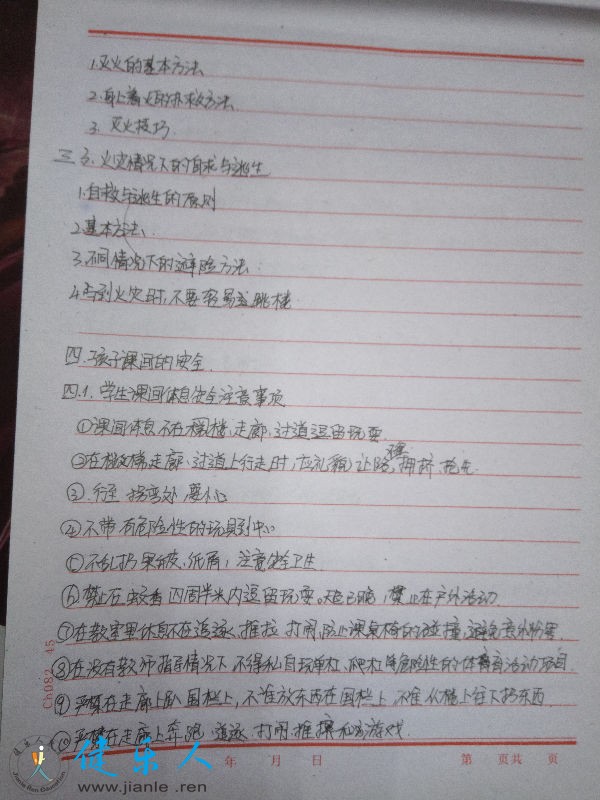 1.灭火的基本方法
2.身上着火的扑救方法
3. 灭火技巧
三 3.火灾情况下的自救与逃生
1.自救与逃生的原则
2.基本方法
3.不同情况下的避险方法
4.遇到火灾时,不要轻易跳楼
四.孩子课间的安全.
四.1.学生课间休息安全注意事项
①课间休息不在楼梯,走廊、过道逗留玩耍
②在楼梯走廊、过道上行走时,应礼貌让路,拥挤、抢先
③.行至 拐弯处 要小心
④不带有危险性的玩具到中心
⑤不乱扔果皮、纸屑,注意安全卫生
⑥禁止在蚊香四周半米内逗留玩耍。天已晚,禁止在户外活动.
⑦在教室里休息不在追逐、推拉、打闹,防止课桌椅的碰撞,避免意外伤害
⑧在没有教师指导情况下,不得私自玩单杠、爬杠等危险性的体育活动项目.
⑨严禁在走廊上趴围栏上,不准放东西在围栏上,不准从楼上往下扔东西
⑩严禁在走廊上奔跑 追逐、打闹、推搡和游戏.
Ch082 45
年 月 日 第 页共 页
健乐人
www.jianle.ren